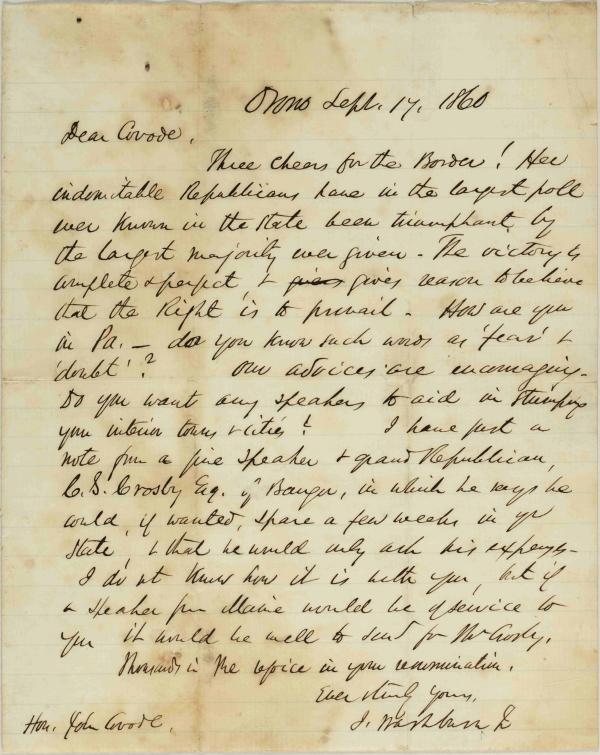 Orono Sept. 17, 1860
Dear Covode,
Three cheers for the Border! Her
indomitable Republicans have in the largest poll
ever known in the State been triumphant, by
the largest majority ever given - The victory is
complete & perfect, & gives gives reason to believe
that the Right is to prevail - How are you
in Pa. - do you know such words as 'fear' &
'doubt'? Our advices are encouraging -
Do you want any speakers to aid in stumping
your interior towns & cities? I have just a
note from a fine speaker & grand Republican,
Esq. of Bangor, in which he says he
could, if wanted, spare a few weeks in yr
State, & that he would only ask his expenses -
I do not know how it is with you, but if
a speaker from Maine would be of service to
you it would be well to send for Mr Crosby.
Thousands in Me rejoice in your renomination.
Ever truly yours,
I. Washburn Jr
Hon. John Covode.